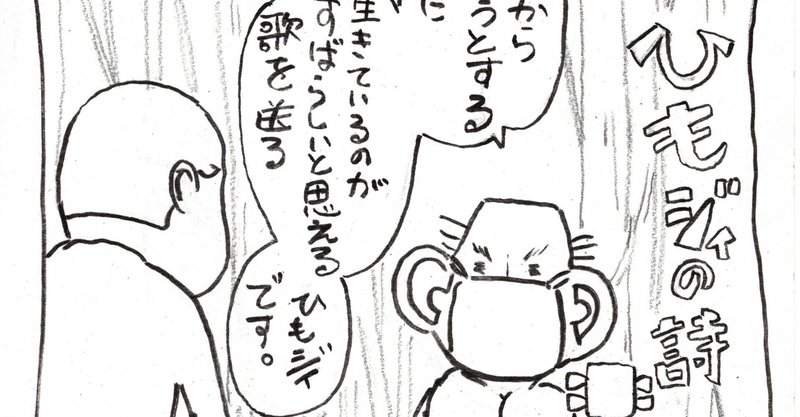 ひもジィの詩
から
うとする
に
生きているのが
すばらしいと思える
歌を送る
ひもジィ
です。